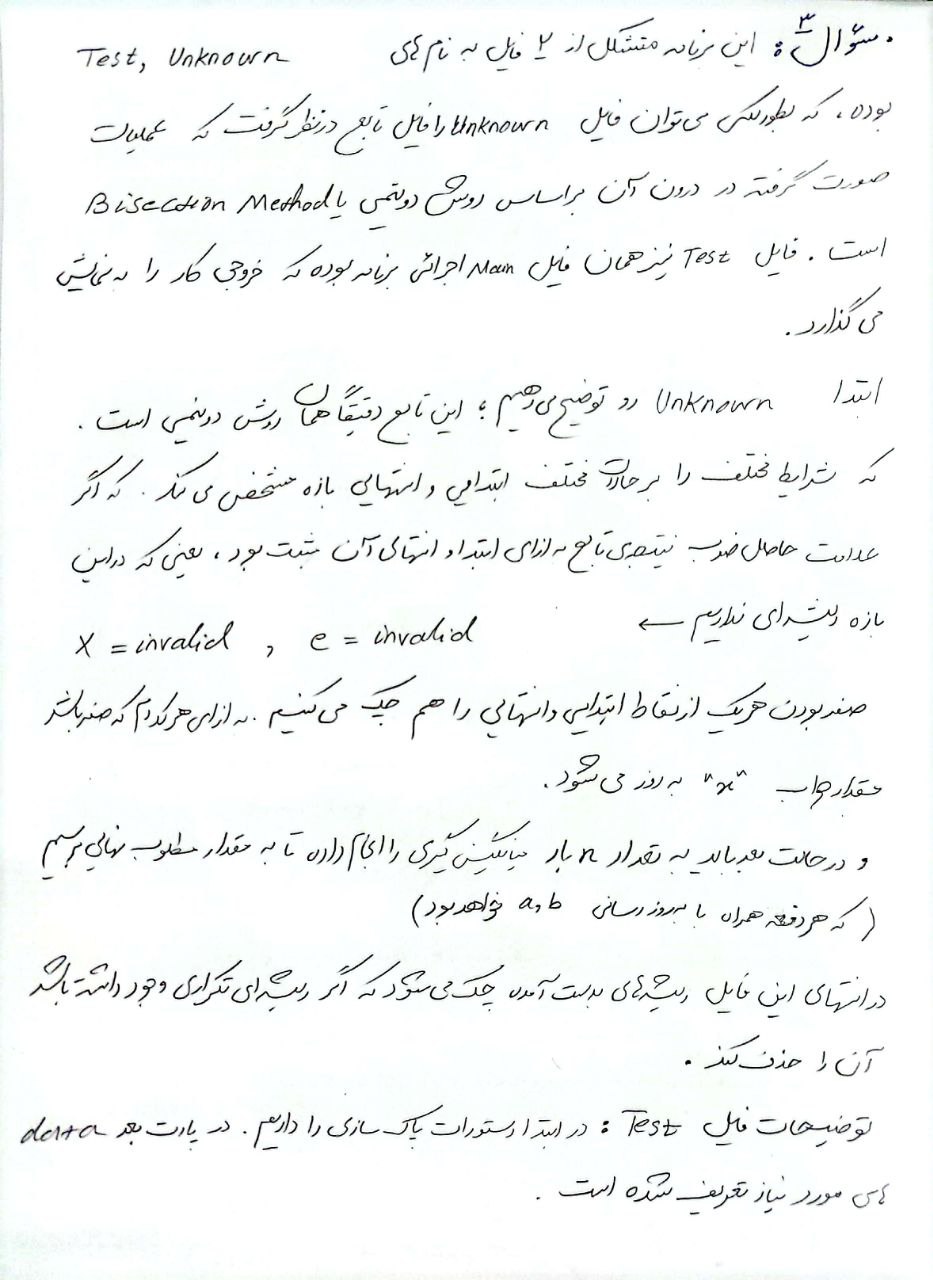 سؤال ۳: این برنامه متشکل از ۲ فایل به نام های Test, Unknown
بوده، که بطور کلی می توان فایل Unknown را فایل تابع در نظر گرفت که عملیات
صورت گرفته در درون آن براساس روش دونیمی یا Bisection Method
است. فایل Test نیز همان فایل Main اجرائی برنامه بوده که خروجی کار را به نمایش
می گذارد.
ابتدا Unknown رو توضیح می دهیم؛ این تابع دقیقاً همان روش دونیمی است.
که شرایط مختلف را بر حالات مختلف ابتدایی و انتهایی بازه مشخص می کند. که اگر
علامت حاصل ضرب نتیجه ی تابع به ازای ابتدا و انتهای آن مثبت بود، یعنی که در این
بازه ریشه ای نداریم ← X = invalid , e = invalid
صفر بودن هریک از نقاط ابتدایی و انتهایی را هم چک می کنیم. به ازای هرکدام که صفر باشد
مقدار جواب "x" به روز می شود.
و در حالت بعد باید به تعداد n بار میانگین گیری را انجام داده تا به مقدار مطلوب نهایی برسیم
(که هر دفعه همراه با به روز رسانی a,b خواهد بود)
در انتهای این فایل ریشه های بدست آمده چک می شود که اگر ریشه ای تکراری وجود داشته باشد
آن را حذف کند.
توضیحات فایل Test: در ابتدا دستورات پاک سازی را داریم. در پارت بعد data
های مورد نیاز تعریف شده است.